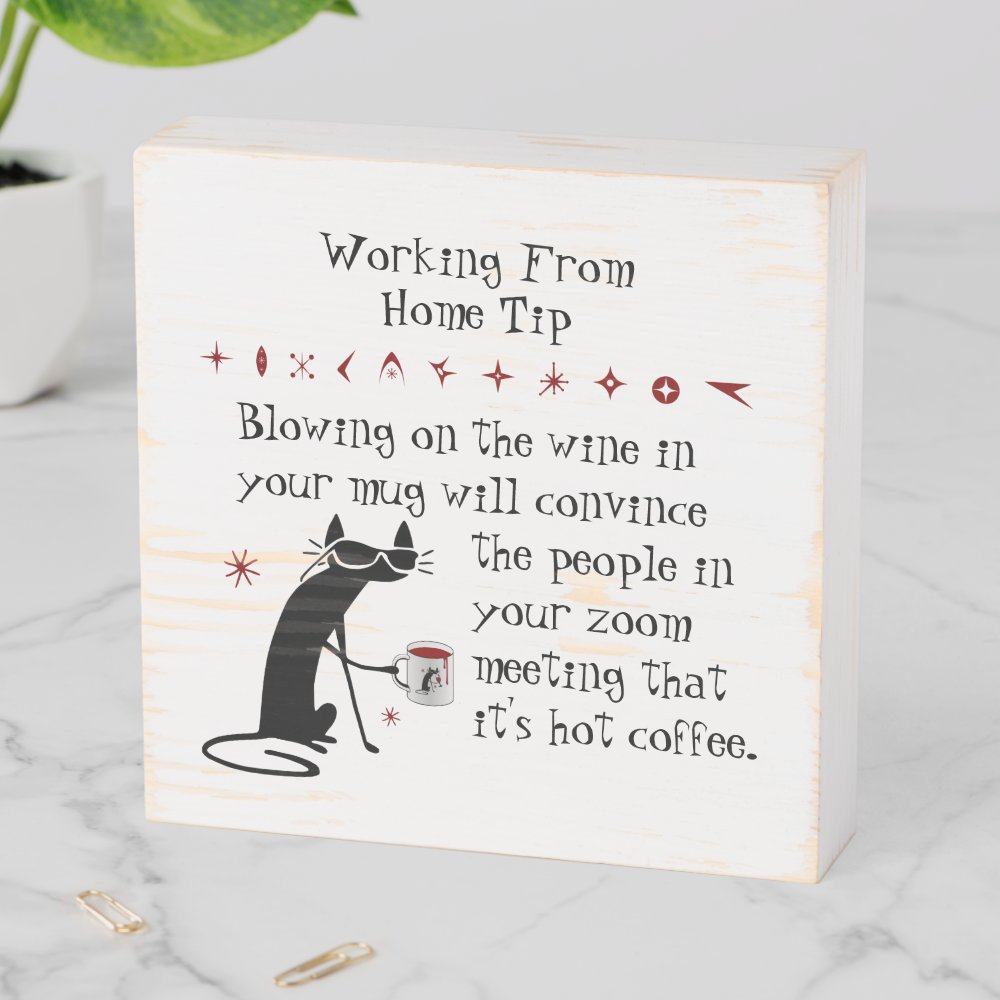 Working From
Home Tip
Blowing on the wine in
your mug will convince
the people in
your zoom
meeting that
it's hot coffee.